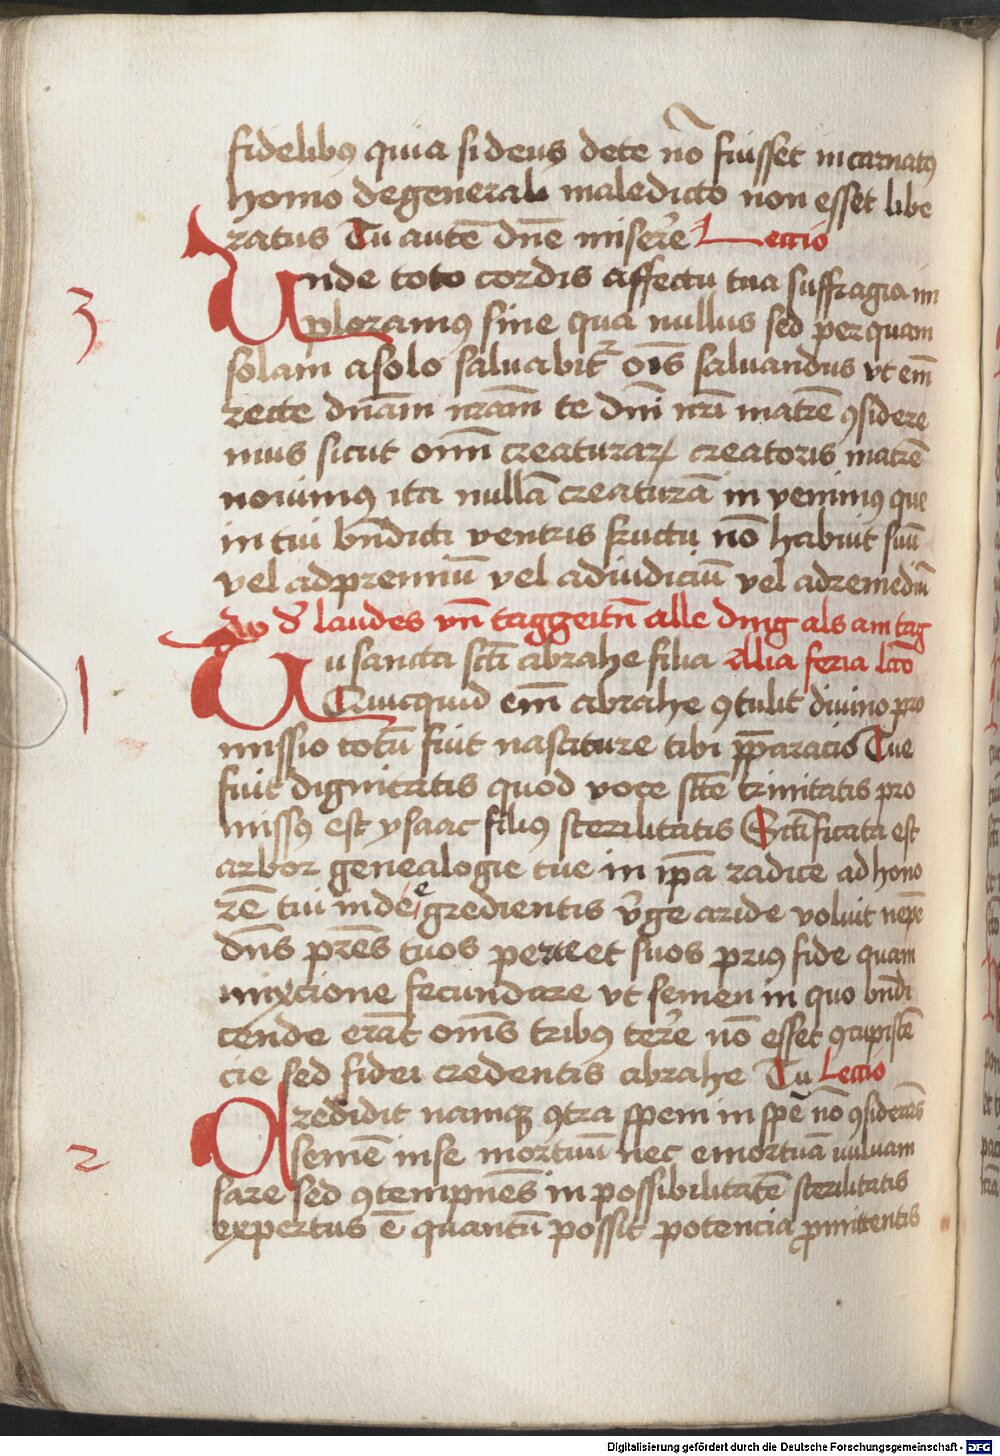 fidelibꝯ quia si deus de te nō fuisset incarnatꝯ
homo de generali maledicto non esset libe
ratus Tu autē dn̄e miserē Leccio
3
Unde toto cordis affectu tua suffragia im
ploramꝯ sine qua nullus sed per quam
solam a solo saluabitr̄ oīs saluandus vt em̄
recte dn̄am nr̄am te dn̄i nr̄i matrē ꝯsidere
mus sicut oīm creaturaꝝ creatoris matrē
nouimꝯ ita nullā creaturā in venimꝯ que
in tui bn̄dicti ventris fructu nō habuit suū
vel ad premiū vel ad iudiciū vel ad remediū
laudes vn̄ taggeitn̄ alle ding als am tag
1
Tu sancta sc̄ti abrahe filia Alia feria lc̄o
Quicquid em̄ abrahe ꝯtulit diuino pro
missio totū fuit nasciture tibi p̄paracio Tue
fuit dignitatis quod voce sc̄te trinitatis pro
missꝯ est ysaac filiꝯ sterilitatis Sc̄tificata est
arbor genealogie tue in ip̄a radice ad hono
rē tui inde egredientis v̄ge aride voluit nepe
dn̄s pr̄es tuos et suos priꝯ fide quam
mixcione fecundare vt semen in quo bn̄di
cende erāt om̄s tribꝯ terre nō esset ꝯcupiscē
cie sed fidei credentis abrahe Tu Leccio
2
Credidit namqꝫ ꝯtra spem in spē nō ꝯsiderās
semē in se mortuū nec emortuā vuluam
sare sed ꝯtempnēs inpossibilitatē sterilitatis
expertus ē quantū possit potencia ꝓmittentis
Digitalisierung gefördert durch die Deutsche Forschungsgemeinschaft - DFG